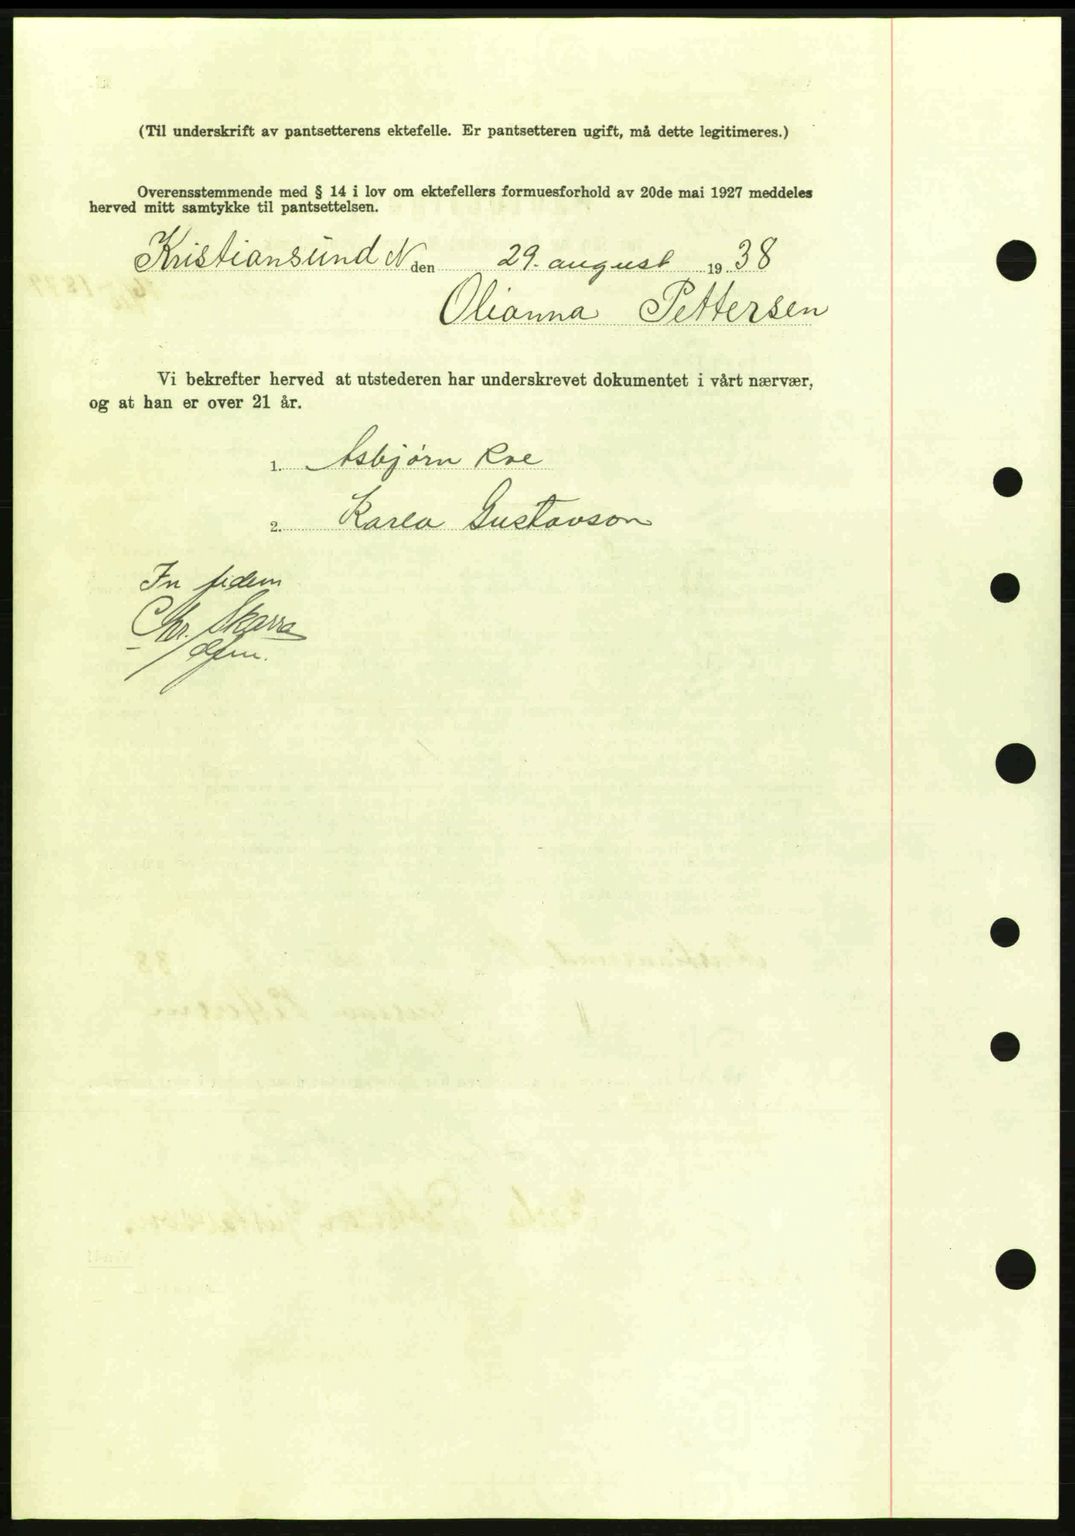 (Til underskrift av pantsetterens ektefelle. Er pantsetteren ugift, må dette legitimeres.)
Overensstemmende med § 14 i lov om ektefellers formuesforhold av 20de mai 1927 meddeles
herved mitt samtykke til pantsettelsen.
Kristiansund N den 29. august 1938
Olianna Pettersen
Vi bekrefter herved at utstederen har underskrevet dokumentet i vårt nærvær,
og at han er over 21 år.
1. Asbjørn Roe
2. Karla Gustavson
In fidem
Chr. Skarra